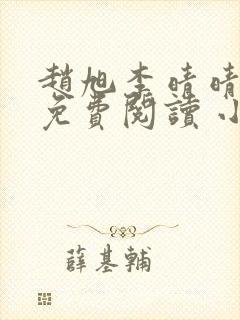 趙旭李晴晴
免費閱讀小
薛基輔